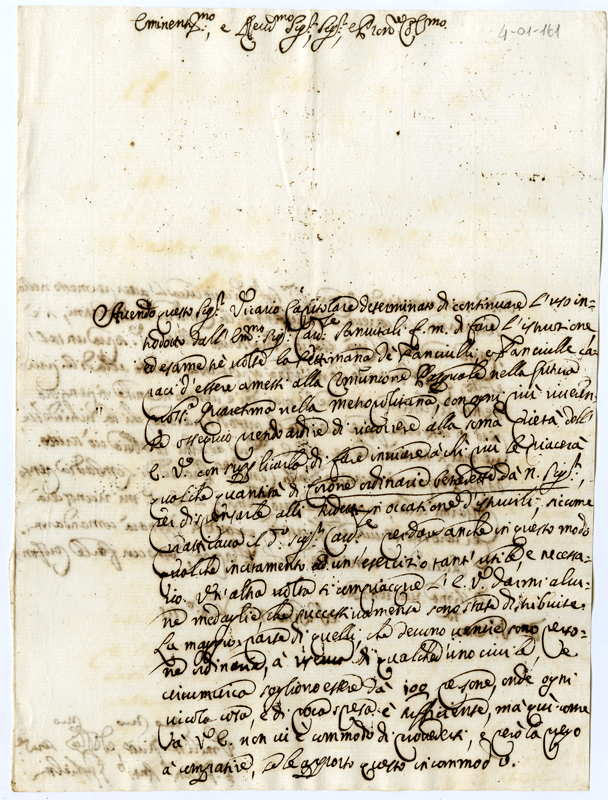 Eminent.mo, e Rev.mo Sig.r, Sig.r, e Pron
4-01-161
Avendo questo Sig.r Vicario Capitolare determinato di continuare l'uso in-
trodotto dall'Em.mo Sig.r Card.e Sanvitali f. m. di fare l'istruzione
ed esame tre volte la settimana de Fanciulli, e Fanciulle ca-
paci d'essere amessi alla Comunione Pasquale nella futura
Quaresima nella metropolitana, con ogni più riveren-
te ossequio prendo ardire di ricorrere alla somma pietà dell'
E. V. con suplicarla di fare inviare à chi più le piacerà
qualche quantità di Corone ordinarie benedette da N. Sig.re,
per dispensarle alli in occasione d'esami, sicome
praticava il d.o Sig.r Card.e per dare anche in questo modo
qualche incitamento ad un esercizio tant'utile, e necessa-
rio. Un'altra volta si compiacque l'E. V. darmi alcu-
ne medaglie che successivamente sono state distribuite.
La maggior parte di quelli, che devono sono perso-
ne ordinarie, à di qualched'uno civile, e
circumcirca sogliono essere da 100 persone, onde ogni
picola cosa, e di poca spesa è sufficiente, ma quì come
sà V. E. non vi è commodo di provedersi, e però la prego
à compatire, se le apporto questo incommodo.